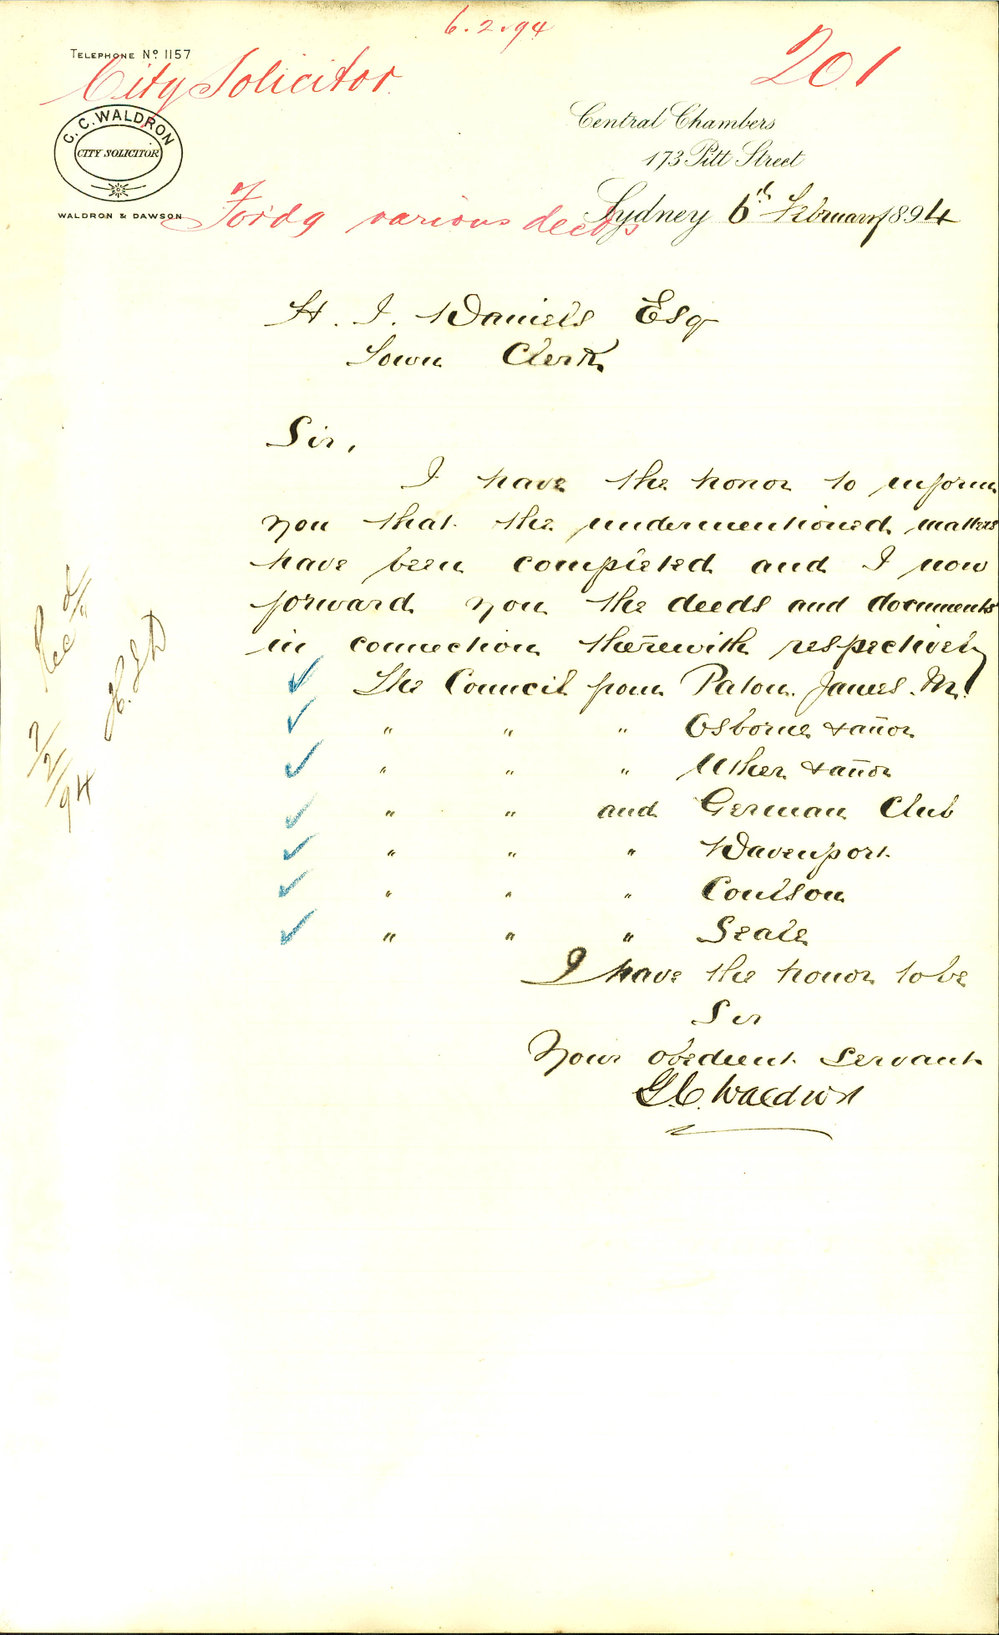 6.2.94
201
TELEPHONE No. 1157
City Solicitor
G. C. WALDRON
CITY SOLICITOR
WALDRON & DAWSON
Central Chambers
173 Pitt Street
Fordg various deeds
Sydney 6th February 1894
H. J. Daniels Esq
Town Clerk
Sir,
I have the honor to inform
you that the undermentioned matters
have been completed and I now
forward you the deeds and documents
in connection therewith respectively
The Council from Paton, James, Mt
" " " Osborne & anor
" " " Uther & anor
" " and German Club
" " " Davenport
" " " Coulson
" " " Seale
I have the honor to be
Sir
Your obedient servant
G. C. Waldron
Recd
H.J.D
7/2/94